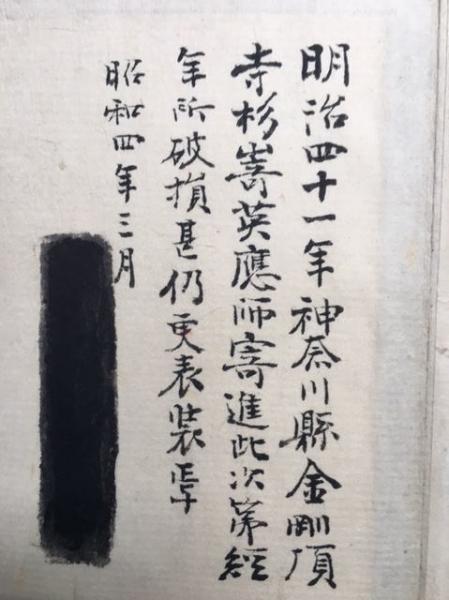 明治四十一年神奈川縣金剛頂
寺杉嵜英應師寄進此次第經
年所破損甚仍更表装
昭和四年三月